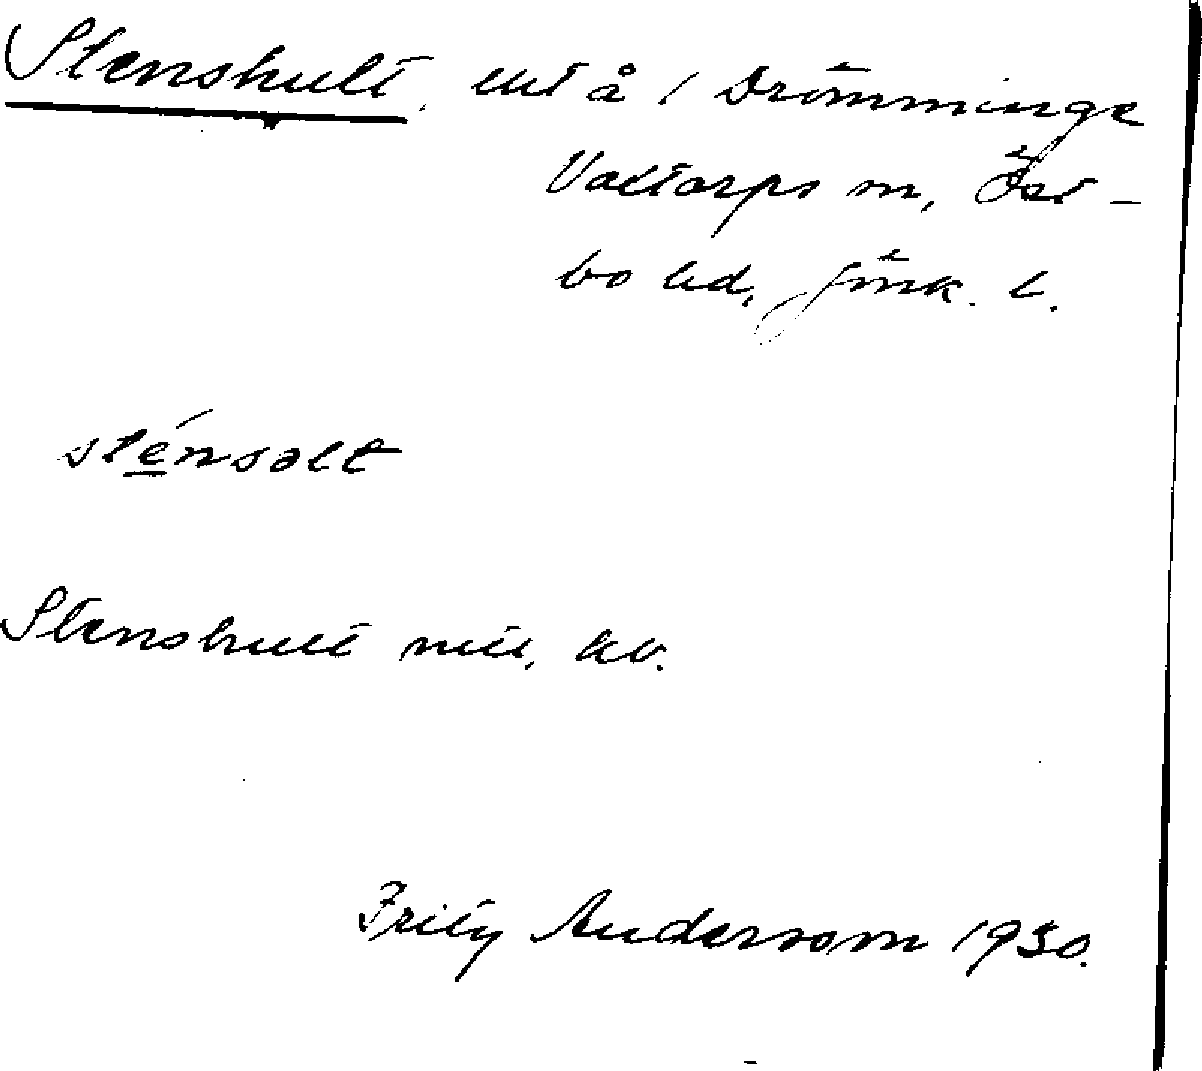 Stenshult. utl å / Drömminge
Valtorps sn, Öst-
bo hd, Jönk. l.
sténsolt
Stenshult
Fritz Andersson 1930.